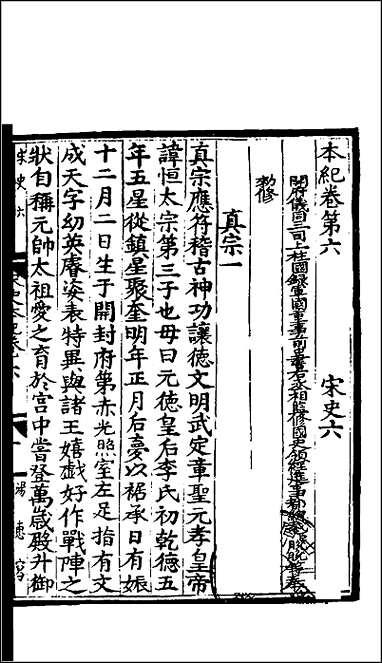 本紀卷第六 宋史六
開府儀同三司上柱國錄軍國重事前中書右丞相監修國史領經筵事都總裁臣脫脫等奉
勅修
真宗一
真宗應符稽古神功讓德文明武定章聖元孝皇帝
諱恒太宗第三子也母曰元德皇后李氏初乾德五
年五星從鎮星聚奎明年正月后夢以裾承日有娠
十二月二日生于開封府第赤光照室左足指有文
成天字幼英睿姿表特異與諸王嬉戲好作戰陣之
狀自稱元帥太祖愛之育於宮中嘗登萬歲殿升御
宋史六